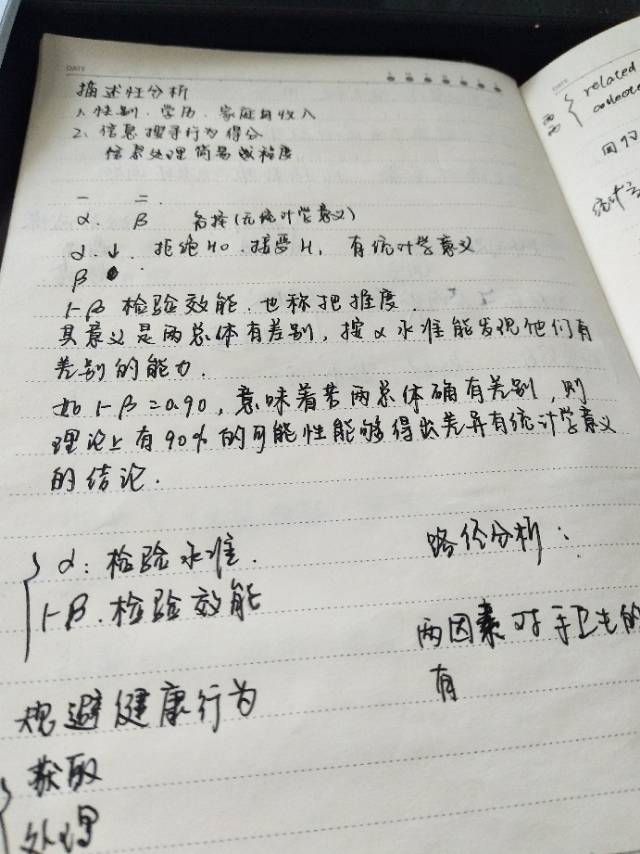 DATE
描述性分析
1. 性别、学历、家庭月收入
2、信息搜寻行为得分
信息处理简易或程度
一 二.
α. β (无统计学意义)
α. ↓. 拒绝H0. 接受H, 有统计学意义
β
1-β 检验效能. 也称把握度.
其意义是两总体有差别, 按α水准能发现他们有
差别的能力.
如1-β=0.90, 意味着若两总体确有差别, 则
理论上有90%的可能性能够得出差异有统计学意义
的结论.
α: 检验水准.
1-β. 检验效能
路径分析:
两因素对手卫生的
有
规避健康行为
获取
处理
DATE
related
统计